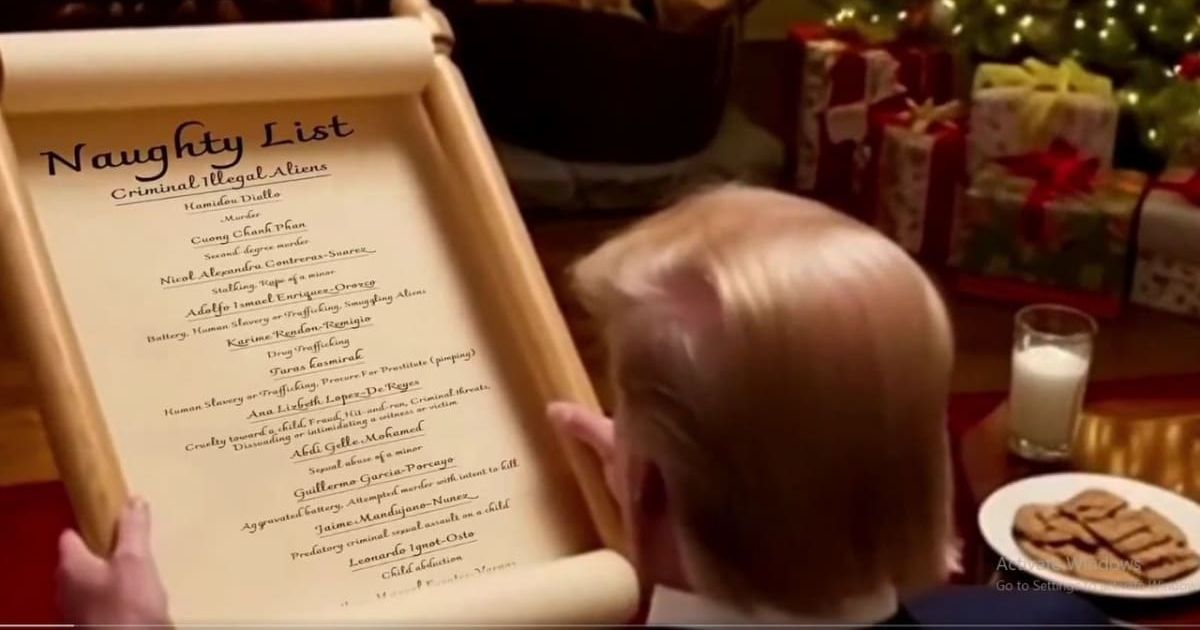 Naughty List
Criminal Illegal Aliens
Hamidou Diallo
Murder
Cuong Chanh Phan
Second degree murder
Nicol Alexandra Contreras-Suarez
Stalking, Rape of a minor
Adolfo Ismael Enriquez-Orozco
Battery, Human Slavery or Trafficking, Smuggling Aliens
Karime Rendon-Remigio
Drug Trafficking
Taras kosmirak
Human Slavery or Trafficking, Procure For Prostitute (pimping)
Ana Lizbeth Lopez-De Reyes
Cruelty toward a child, Fraud, Hit-and-run, Criminal threats,
Dissuading or intimidating a witness or victim
Abdi Gelle Mohamed
Sexual abuse of a minor
Guillermo Garcia-Porcayo
Aggravated battery, Attempted murder with intent to kill
Jaime Mandujano-Nunez
Predatory criminal sexual assault on a child
Leonardo Ignot-Osto
Child abduction
Activate Windows
Go to Settings to activate Windows